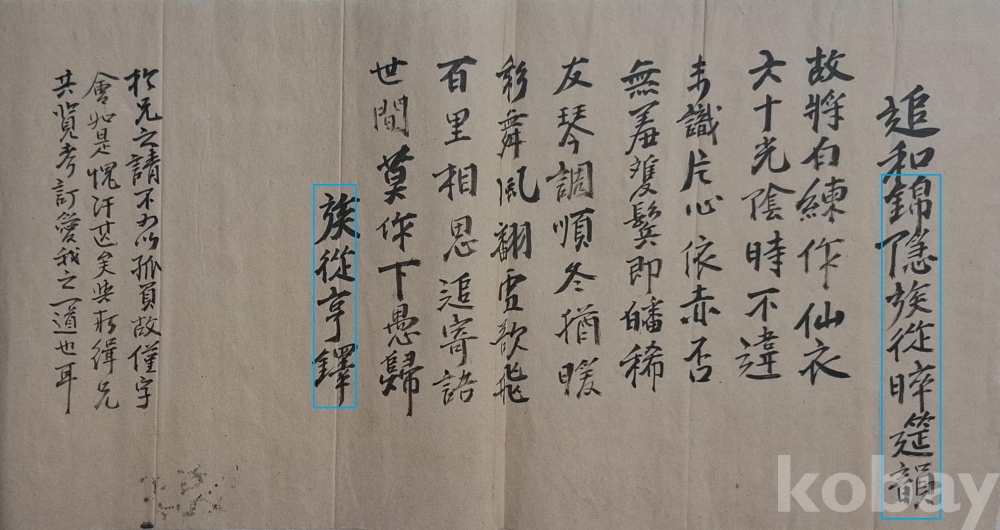 追和錦隱族從晬筵韻
故將白練作仙衣
六十光陰時不違
未識片心依赤否
無羞雙鬂即皤稀
友琴調順冬猶暖
彩舞風翻雪欲飛
百里相思追寄語
世間莫作下愚歸
族從亨鐸
於兄之請不可以孤負故僅字
會如是愧汗甚矣與行緝兄
共覽考訂愛我之一道也耳
kobay